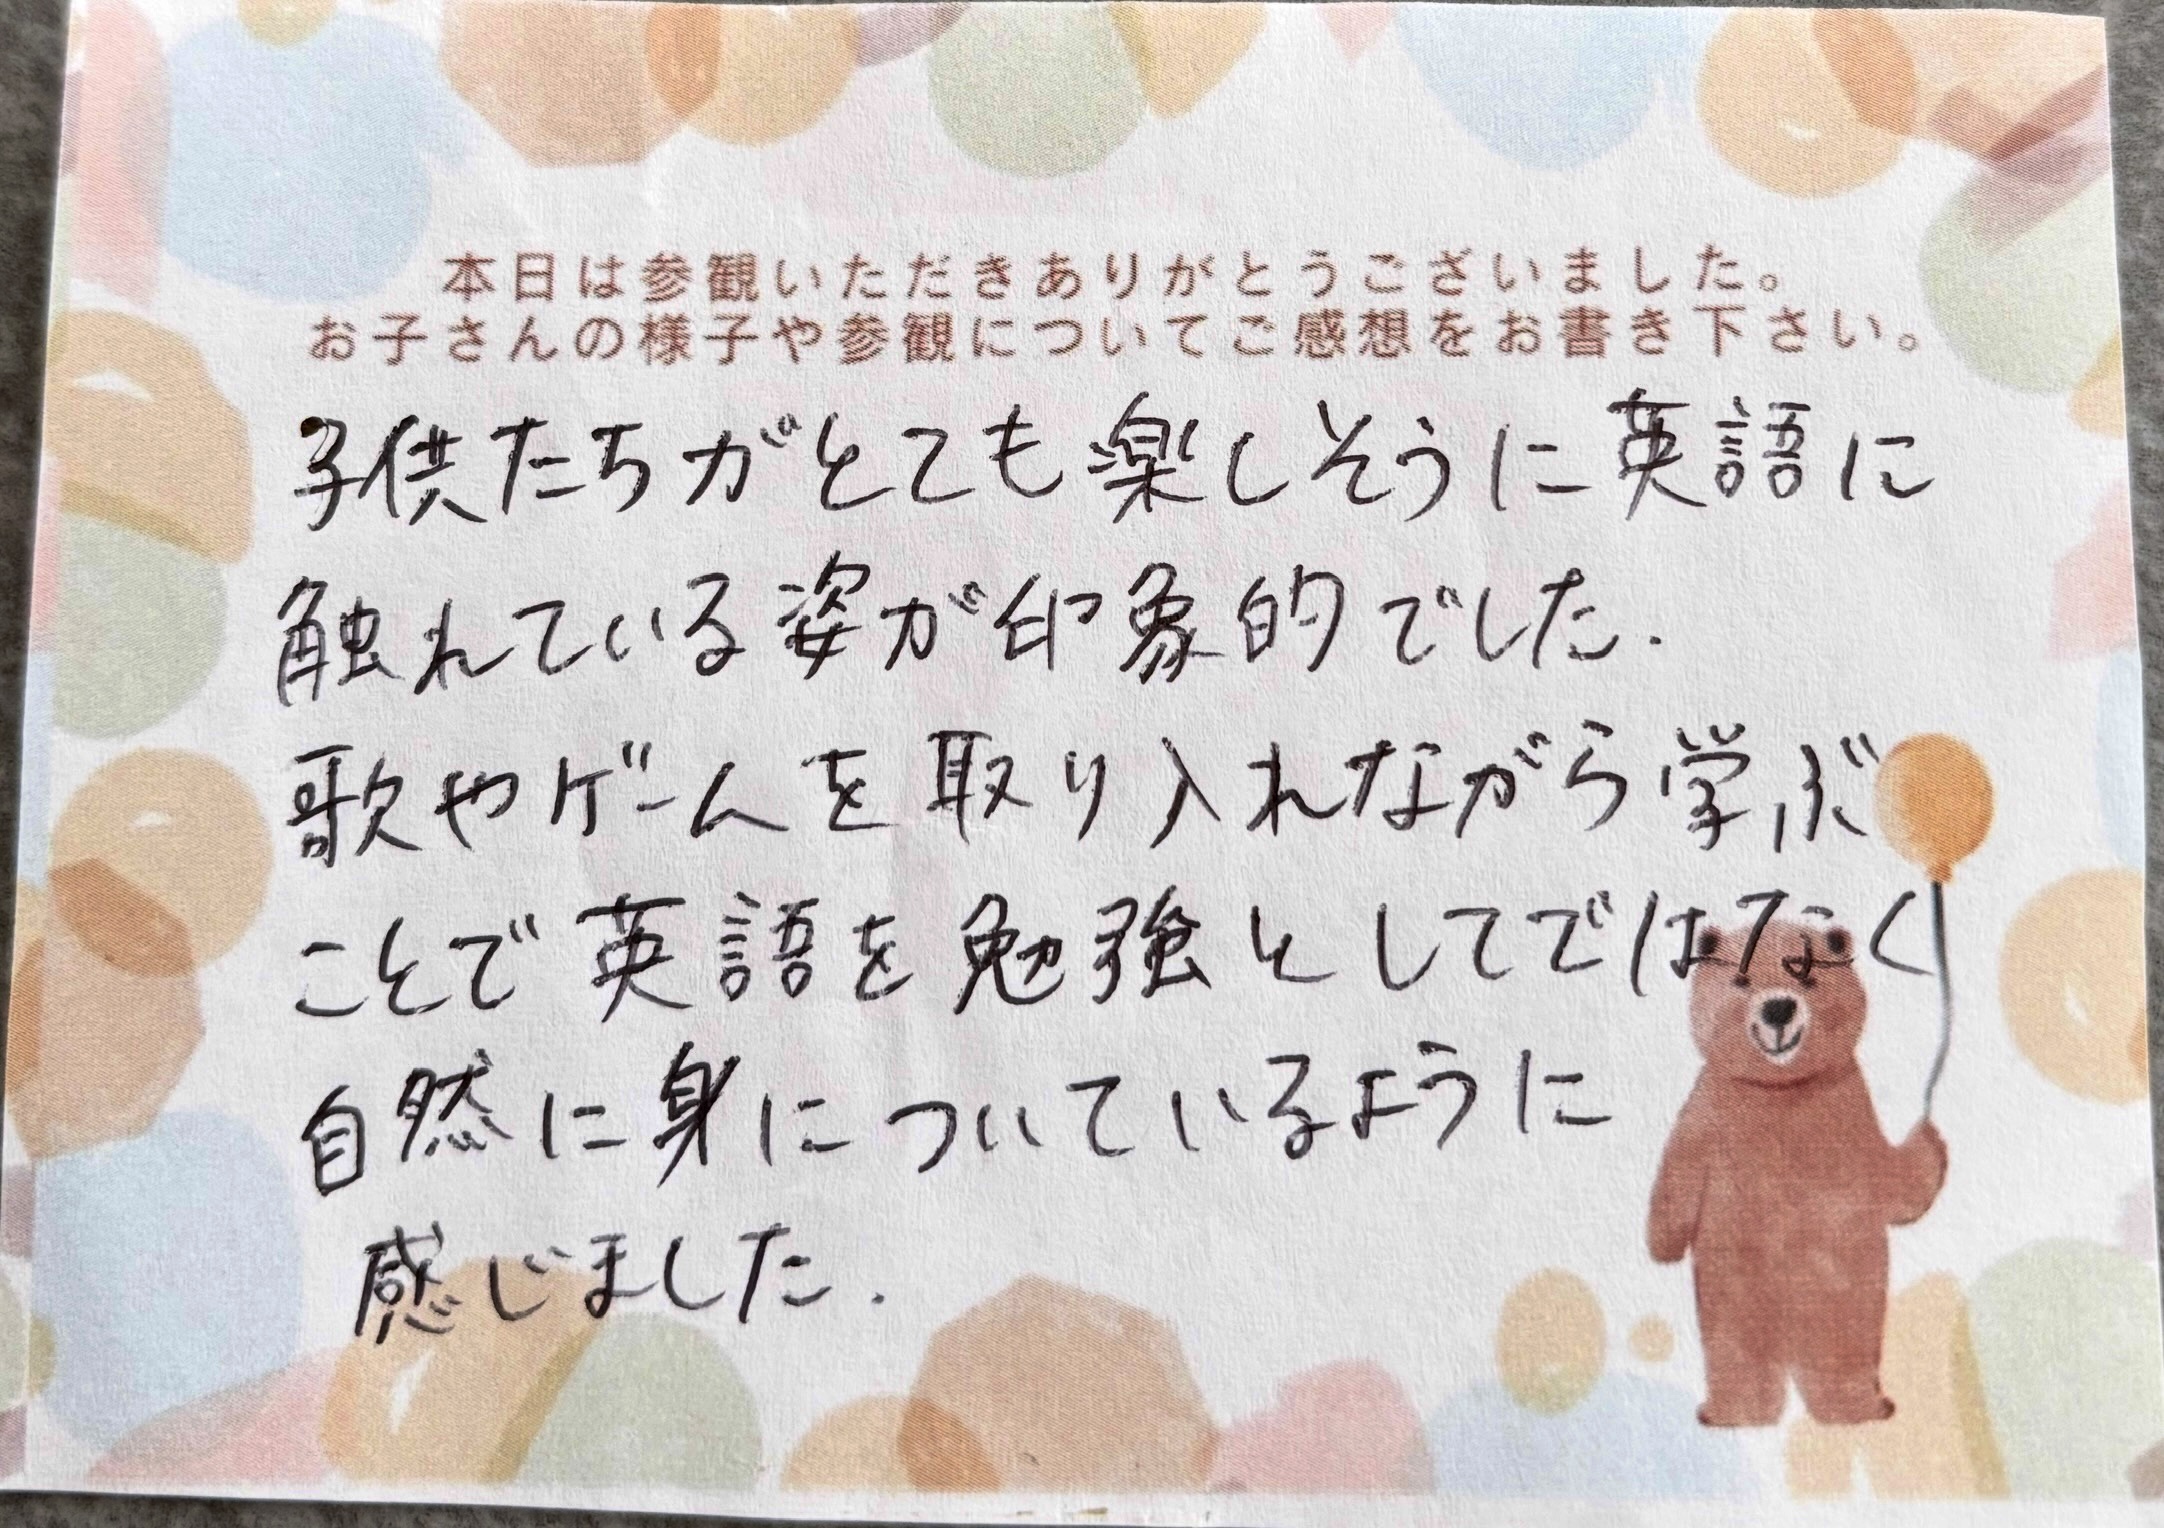 本日は参観いただきありがとうございました。
お子さんの様子や参観についてご感想をお書き下さい。
子供たちがとても楽しそうに英語に
触れている姿が印象的でした.
歌やゲームを取り入れながら学ぶ
ことで英語を勉強としてではなく
自然に身についているように
感じました.